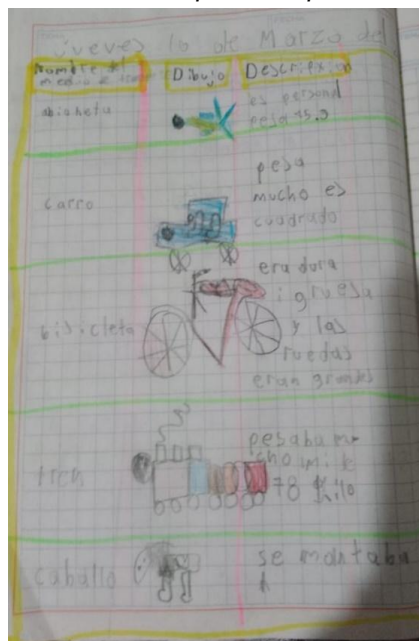 jueves 10 de Marzo del
Nombre del
medio de
Dibujo
Descripxion
es personal
pesa 15.9
carro
pesa
mucho es
cuadrado
bisicleta
era dora
i gruesa
y las
ruedas
eran grandes
tren
pesaba mu-
cho
78 Kilo
caballo
se montaba